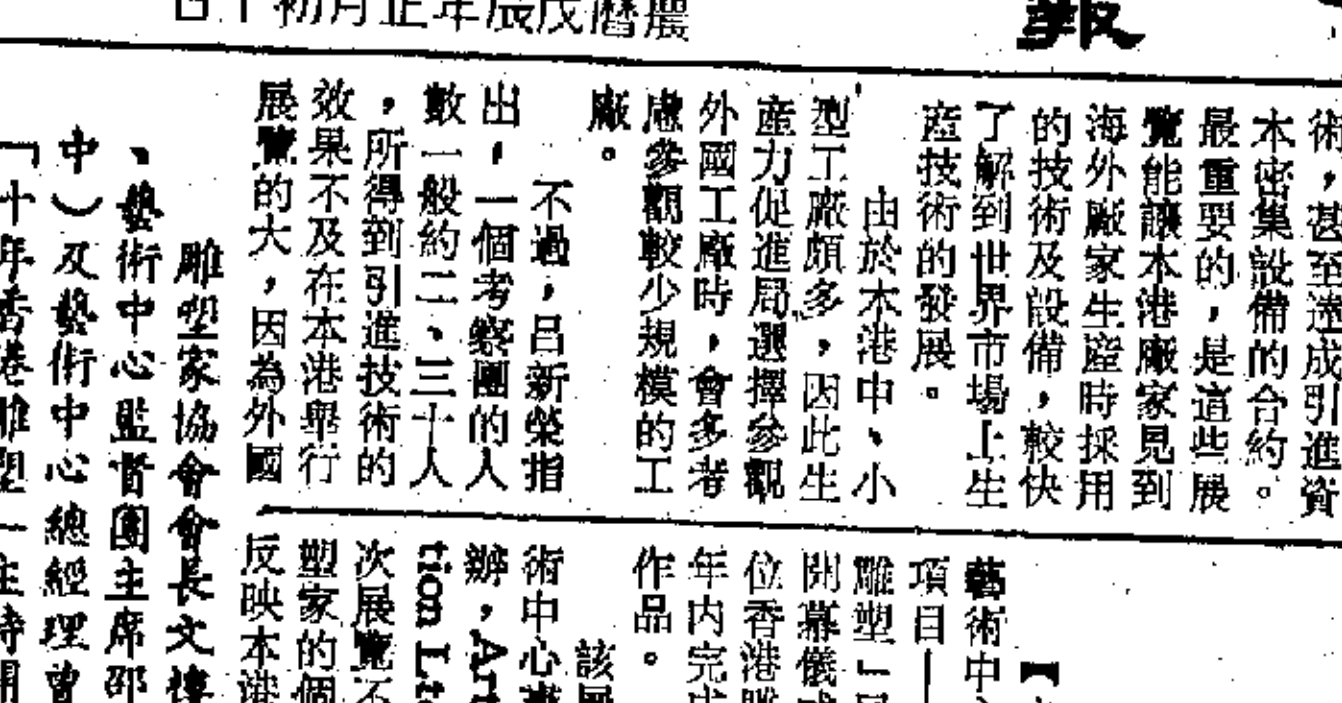 報
農曆戊辰年正月初十日
術，甚至達成引進資
本密集設備的合約。
最重要的，是這些展
覽能讓本港廠家見到
海外廠家生產時採用
的技術及設備，較快
了解到世界市場上生
產技術的發展。
由於本港中、小
型工廠頗多，因此生
產力促進局選擇參觀
外國工廠時，會多考
慮參觀較少規模的工
廠。
不過，呂新榮指
出，一個考察團的人
數一般約二、三十人
，所得到引進技術的
效果不及在本港舉行
展覽的大，因為外國
雕塑家協會會長文樓
、藝術中心監督團主席邵
中）及藝術中心總經理曾
「十年香港雕塑一主持開
【
藝術中
項目—
雕塑」
開幕儀
位香港雕
年內完
作品。
該
術中心
辦，Art
tion Lt
次展覽不
塑家的個
反映本港